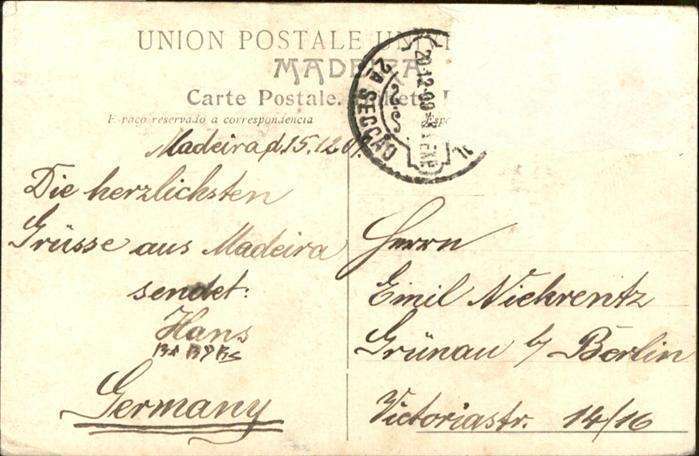 UNION POSTALE
MADEIRA
Carte Postale.
Espaço reservado a correspondencia
2A SECÇÃO
Madeira d. 15.12.09.
Die herzlichsten
Grüsse aus Madeira
sendet:
Hans
Germany
Herrn
Emil Niekrentz
Grünau b/ Berlin
Victoriastr. 14/16